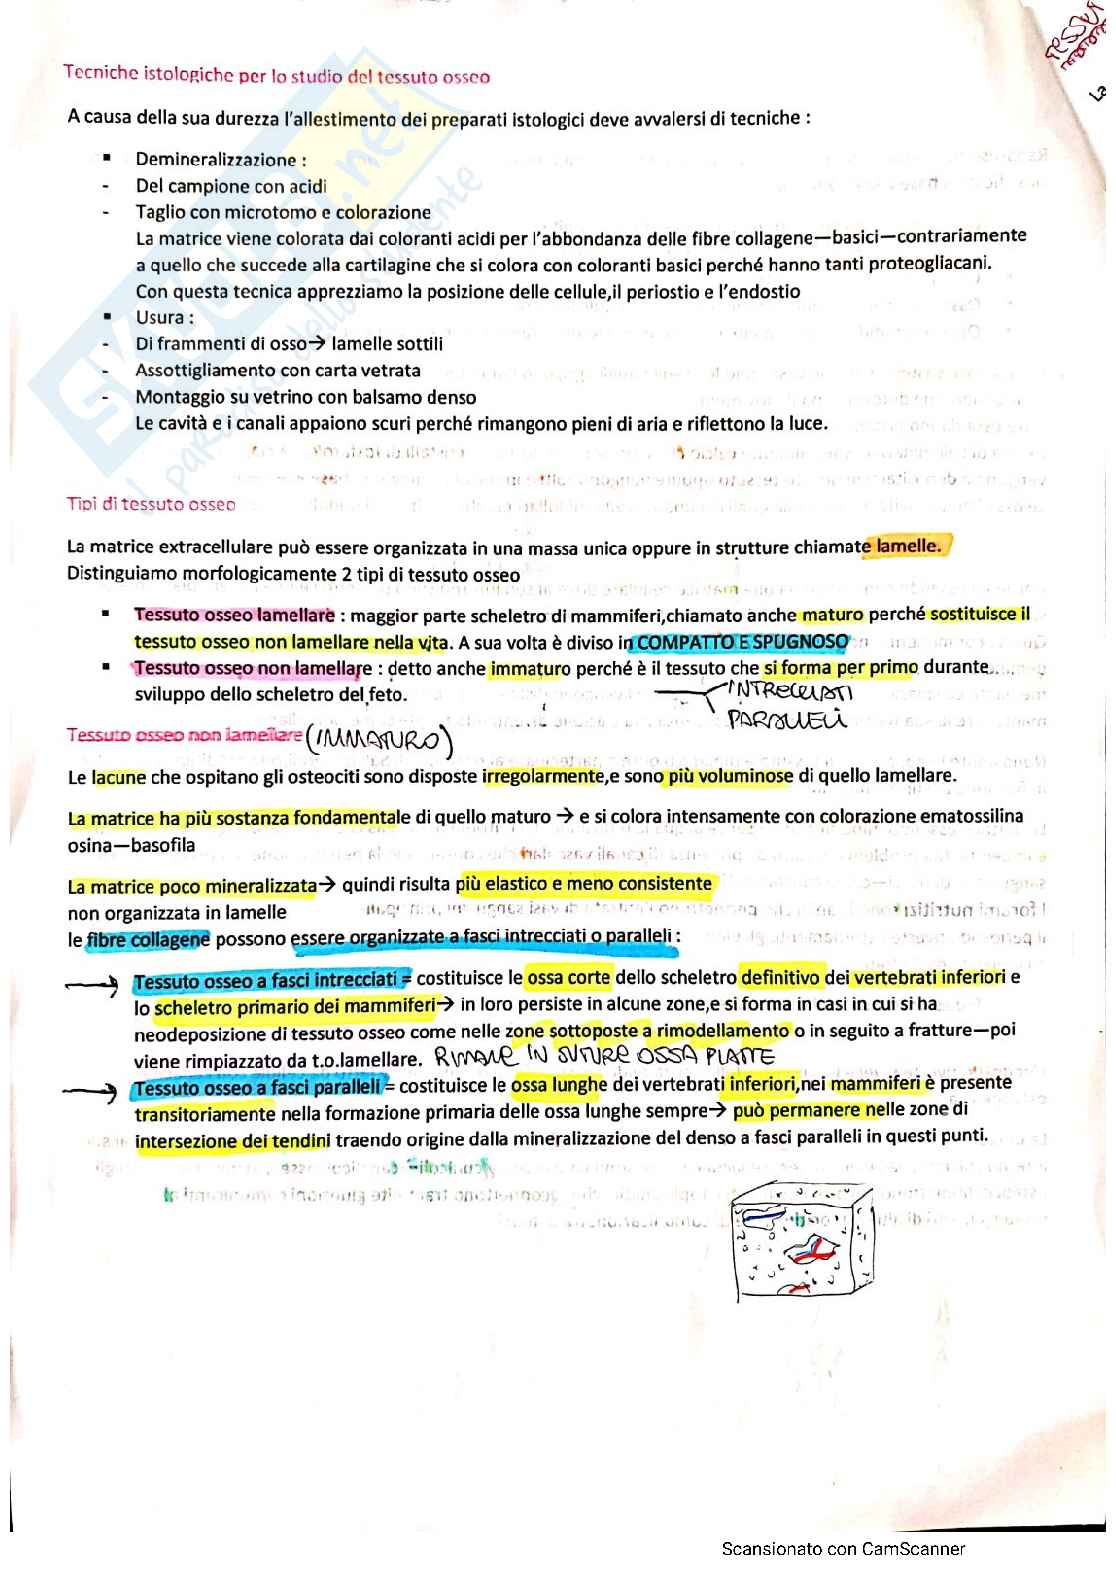 Tecniche istologiche per lo studio del tessuto osseo
A causa della sua durezza l'allestimento dei preparati istologici deve avvalersi di tecniche :
▪ Demineralizzazione :
- Del campione con acidi
- Taglio con microtomo e colorazione
La matrice viene colorata dai coloranti acidi per l'abbondanza delle fibre collagene—basici—contrariamente
a quello che succede alla cartilagine che si colora con coloranti basici perché hanno tanti proteogliacani.
Con questa tecnica apprezziamo la posizione delle cellule,il periostio e l'endostio
▪ Usura :
- Di frammenti di osso→ lamelle sottili
- Assottigliamento con carta vetrata
- Montaggio su vetrino con balsamo denso
Le cavità e i canali appaiono scuri perché rimangono pieni di aria e riflettono la luce.
Tipi di tessuto osseo
La matrice extracellulare può essere organizzata in una massa unica oppure in strutture chiamate lamelle.
Distinguiamo morfologicamente 2 tipi di tessuto osseo
▪ Tessuto osseo lamellare : maggior parte scheletro di mammiferi,chiamato anche maturo perché sostituisce il
tessuto osseo non lamellare nella vita. A sua volta è diviso in COMPATTO E SPUGNOSO
▪ Tessuto osseo non lamellare : detto anche immaturo perché è il tessuto che si forma per primo durante
sviluppo dello scheletro del feto.
INTRECCIATI
PARALLELI
Tessuto osseo non lamellare (IMMATURO)
Le lacune che ospitano gli osteociti sono disposte irregolarmente,e sono più voluminose di quello lamellare.
La matrice ha più sostanza fondamentale di quello maturo → e si colora intensamente con colorazione ematossilina
osina—basofila
La matrice poco mineralizzata→ quindi risulta più elastico e meno consistente
non organizzata in lamelle
le fibre collagene possono essere organizzate a fasci intrecciati o paralleli :
→ Tessuto osseo a fasci intrecciati = costituisce le ossa corte dello scheletro definitivo dei vertebrati inferiori e
lo scheletro primario dei mammiferi→ in loro persiste in alcune zone,e si forma in casi in cui si ha
neodeposizione di tessuto osseo come nelle zone sottoposte a rimodellamento o in seguito a fratture—poi
viene rimpiazzato da t.o.lamellare. RIMANE IN SUTURE OSSA PIATTE
→ Tessuto osseo a fasci paralleli = costituisce le ossa lunghe dei vertebrati inferiori,nei mammiferi è presente
transitoriamente nella formazione primaria delle ossa lunghe sempre→ può permanere nelle zone di
intersezione dei tendini traendo origine dalla mineralizzazione del denso a fasci paralleli in questi punti.
Scansionato con CamScanner